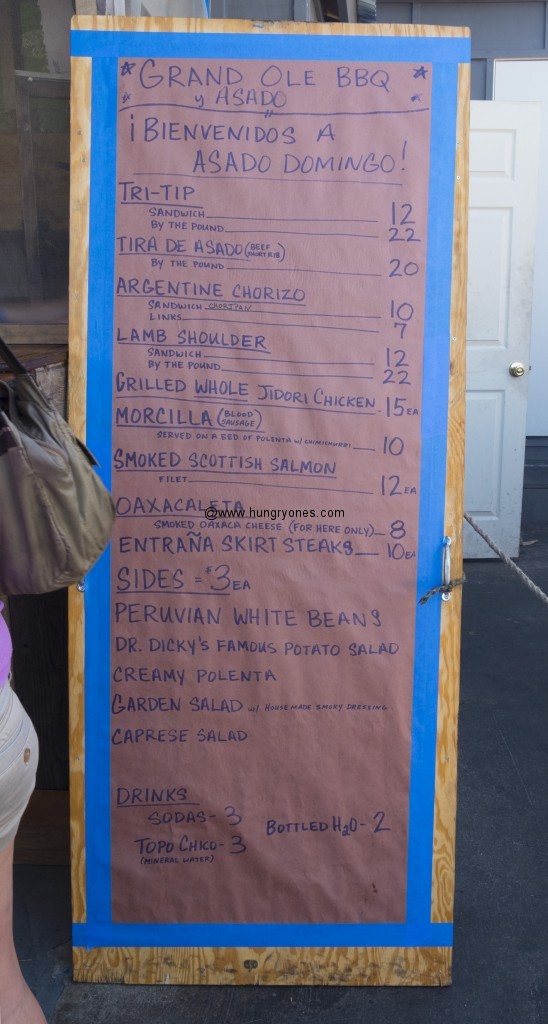 GRAND OLE BBQ
y ASADO
¡BIENVENIDOS A
ASADO DOMINGO!
TRI-TIP
SANDWICH 12
BY THE POUND 22
TIRA DE ASADO (BEEF SHORT RIB)
BY THE POUND 20
ARGENTINE CHORIZO
SANDWICH CHORIPAN 10
LINKS 7
LAMB SHOULDER
SANDWICH 12
BY THE POUND 22
GRILLED WHOLE JIDORI CHICKEN 15 EA
MORCILLA (BLOOD SAUSAGE)
SERVED ON A BED OF POLENTA W/ CHIMICHURRI 10
SMOKED SCOTTISH SALMON
FILET 12 EA
OAXACALETA
@www.hungryones.com
SMOKED OAXACA CHEESE (FOR HERE ONLY) 8
ENTRAÑA SKIRT STEAKS 10 EA
SIDES = $3 EA
PERUVIAN WHITE BEANS
DR. DICKY'S FAMOUS POTATO SALAD
CREAMY POLENTA
GARDEN SALAD W/ HOUSEMADE SMOKY DRESSING
CAPRESE SALAD
DRINKS
SODAS - 3
BOTTLED H2O - 2
TOPO CHICO - 3
(MINERAL WATER)